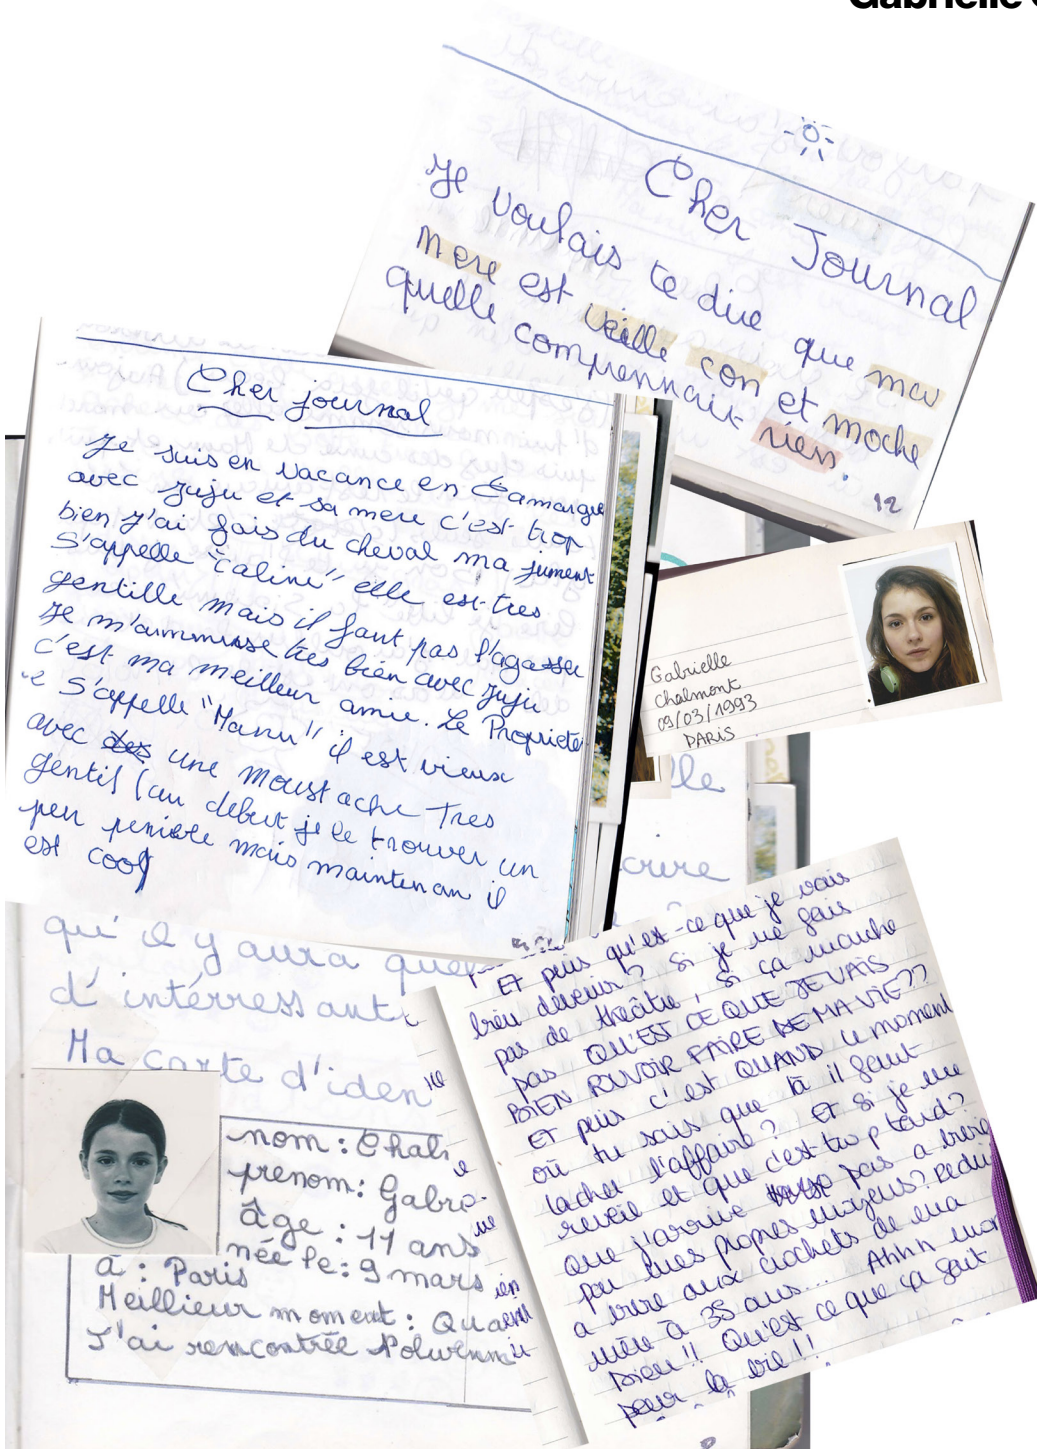 Gabrielle
Cher Journal
Je voulais te dire que ma
mere est veille con et moche
quelle comprennait rien.
12
Cher journal
Je suis en vacance en Camargue
avec juju et sa mere c'est trop
bien j'ai fais du cheval ma jument
s'appelle "caline" elle est tres
gentille mais il faut pas l'agasser
Je m'ammusse tres bien avec juju
c'est ma meilleur amie. Le Propriete
s'appelle "Manu" il est vieux
avec des une moustache Tres
gentil (au debut je le trouver un
peu peniere mais maintenan il
est cool)
Gabrielle
Chalmont
09/03/1993
PARIS
lle
crire
qu'il y aura quel
d'intérressant
Ma carte d'iden
nom : Chal
prenom : Gabr
âge : 11 ans
née le : 9 mars
à : Paris
Meillieur moment : Qua
J'ai rencontrée Nolwenn
Et puis qu'est-ce que je vais
bien devenir ? Si je ne fais
pas de théâtre, si ça marche
pas QU'EST CE QUE JE VAIS
BIEN POUVOIR FAIRE DE MA VIE ??
ET puis c'est QUAND le moment
où tu sais que là il faut
lacher l'affaire ? Et si je me
reveil et que c'est trop tard ?
que j'arrive pas a vivre
par mes propres moyens ? Redui
a vivre aux crochets de ma
mère à 35 ans... Ahhh mon
Dieu !! Qu'est ce que ça fait
peur la vie !!